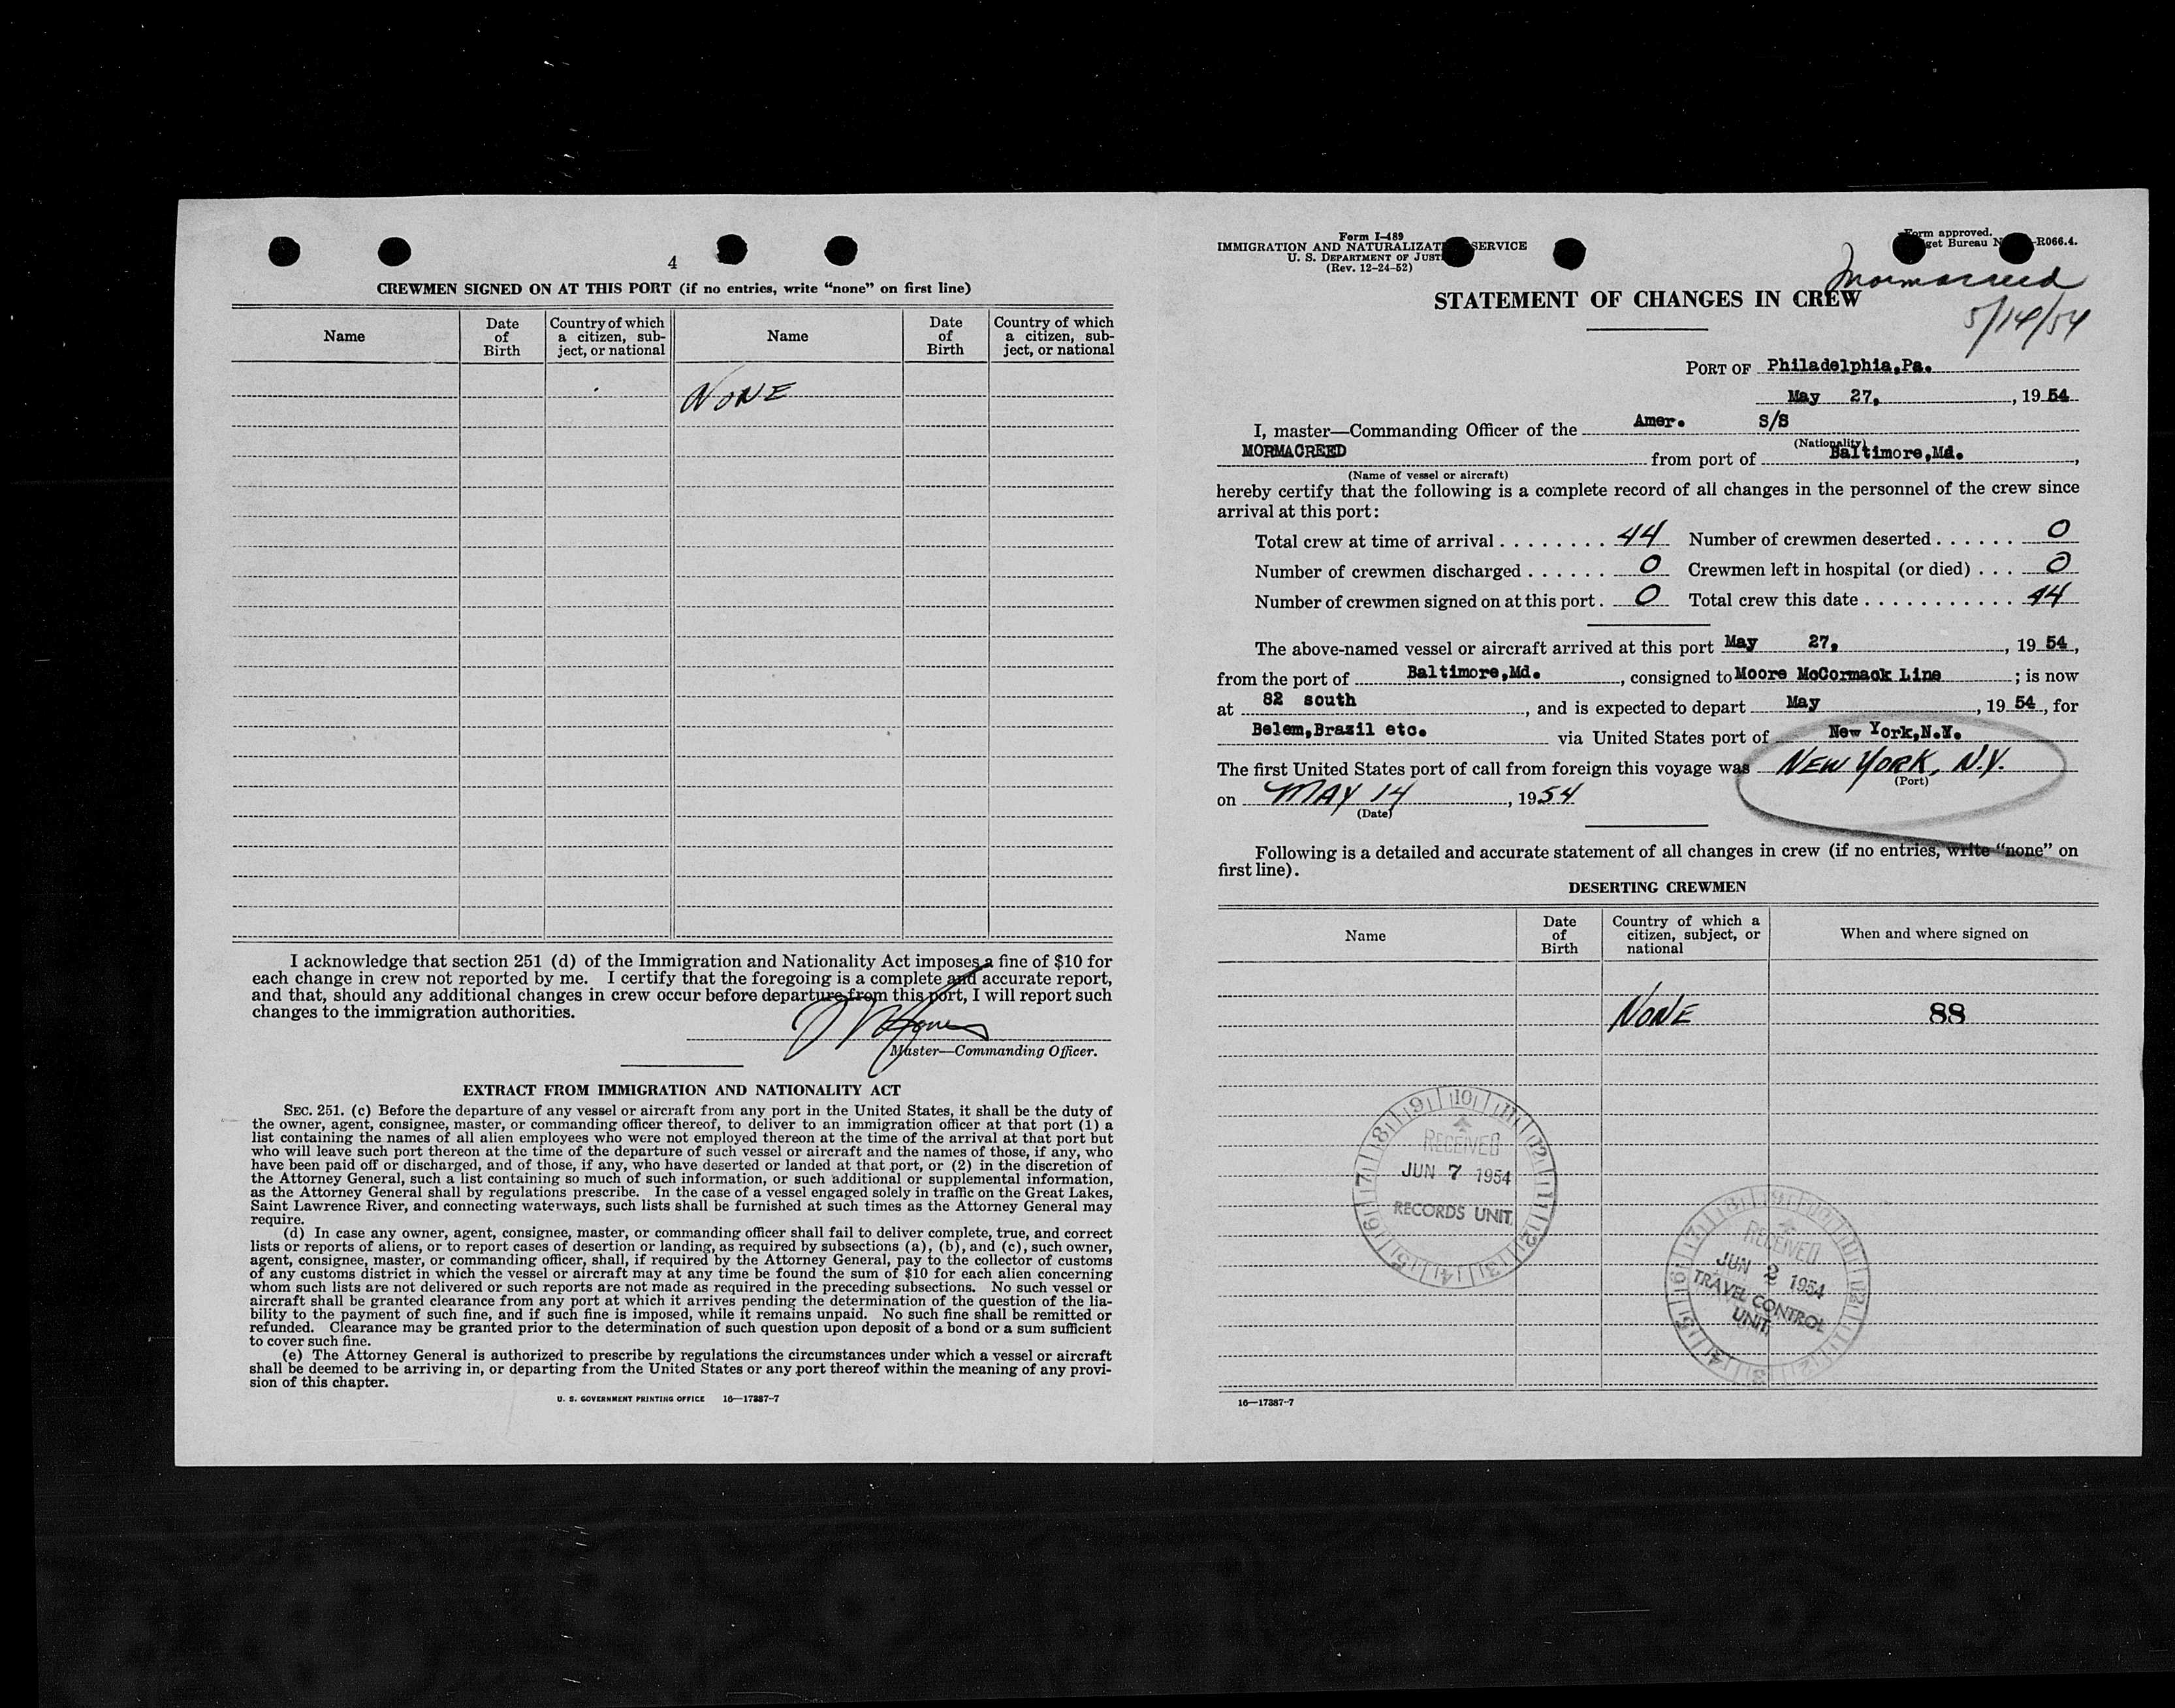 4
CREWMEN SIGNED ON AT THIS PORT (if no entries, write "none" on first line)
Name
Date of Birth
Country of which a citizen, subject, or national
Name
Date of Birth
Country of which a citizen, subject, or national
NONE
I acknowledge that section 251 (d) of the Immigration and Nationality Act imposes a fine of $10 for
each change in crew not reported by me. I certify that the foregoing is a complete and accurate report,
and that, should any additional changes in crew occur before departure from this port, I will report such
changes to the immigration authorities.
Master—Commanding Officer.
EXTRACT FROM IMMIGRATION AND NATIONALITY ACT
SEC. 251. (c) Before the departure of any vessel or aircraft from any port in the United States, it shall be the duty of
the owner, agent, consignee, master, or commanding officer thereof, to deliver to an immigration officer at that port (1) a
list containing the names of all alien employees who were not employed thereon at the time of the arrival at that port but
who will leave such port thereon at the time of the departure of such vessel or aircraft and the names of those, if any, who
have been paid off or discharged, and of those, if any, who have deserted or landed at that port, or (2) in the discretion of
the Attorney General, such a list containing so much of such information, or such additional or supplemental information,
as the Attorney General shall by regulations prescribe. In the case of a vessel engaged solely in traffic on the Great Lakes,
Saint Lawrence River, and connecting waterways, such lists shall be furnished at such times as the Attorney General may
require.
(d) In case any owner, agent, consignee, master, or commanding officer shall fail to deliver complete, true, and correct
lists or reports of aliens, or to report cases of desertion or landing, as required by subsections (a), (b), and (c), such owner,
agent, consignee, master, or commanding officer, shall, if required by the Attorney General, pay to the collector of customs
of any customs district in which the vessel or aircraft may at any time be found the sum of $10 for each alien concerning
whom such lists are not delivered or such reports are not made as required in the preceding subsections. No such vessel or
aircraft shall be granted clearance from any port at which it arrives pending the determination of the question of the lia-
bility to the payment of such fine, and if such fine is imposed, while it remains unpaid. No such fine shall be remitted or
refunded. Clearance may be granted prior to the determination of such question upon deposit of a bond or a sum sufficient
to cover such fine.
(e) The Attorney General is authorized to prescribe by regulations the circumstances under which a vessel or aircraft
shall be deemed to be arriving in, or departing from the United States or any port thereof within the meaning of any provi-
sion of this chapter.
U. S. GOVERNMENT PRINTING OFFICE 16—17387-7
Form I-489
IMMIGRATION AND NATURALIZAT SERVICE
U. S. DEPARTMENT OF JUST
(Rev. 12-24-52)
Form approved.
get Bureau N -R066.4.
Mormacreed
5/14/54
STATEMENT OF CHANGES IN CREW
PORT OF Philadelphia,Pa.
May 27, , 19 54
I, master—Commanding Officer of the Amer. S/S
(Nationality)
MORMACREED from port of Baltimore,Md. ,
(Name of vessel or aircraft)
hereby certify that the following is a complete record of all changes in the personnel of the crew since
arrival at this port:
Total crew at time of arrival . . . . . . . . 44 Number of crewmen deserted . . . . . . 0
Number of crewmen discharged . . . . . . 0 Crewmen left in hospital (or died) . . . 0
Number of crewmen signed on at this port . 0 Total crew this date . . . . . . . . . . . 44
The above-named vessel or aircraft arrived at this port May 27, , 19 54 ,
from the port of Baltimore,Md. , consigned to Moore McCormack Line ; is now
at 82 south , and is expected to depart May , 19 54 , for
Belem,Brazil etc. via United States port of New York,N.Y.
The first United States port of call from foreign this voyage was NEW YORK, N.Y.
(Port)
on MAY 14 , 1954
(Date)
Following is a detailed and accurate statement of all changes in crew (if no entries, write "none" on
first line).
DESERTING CREWMEN
Name
Date of Birth
Country of which a citizen, subject, or national
When and where signed on
NONE 88
RECEIVED
JUN 7 1954
RECORDS UNIT
RECEIVED
JUN 2 1954
TRAVEL CONTROL
UNIT
16—17387-7